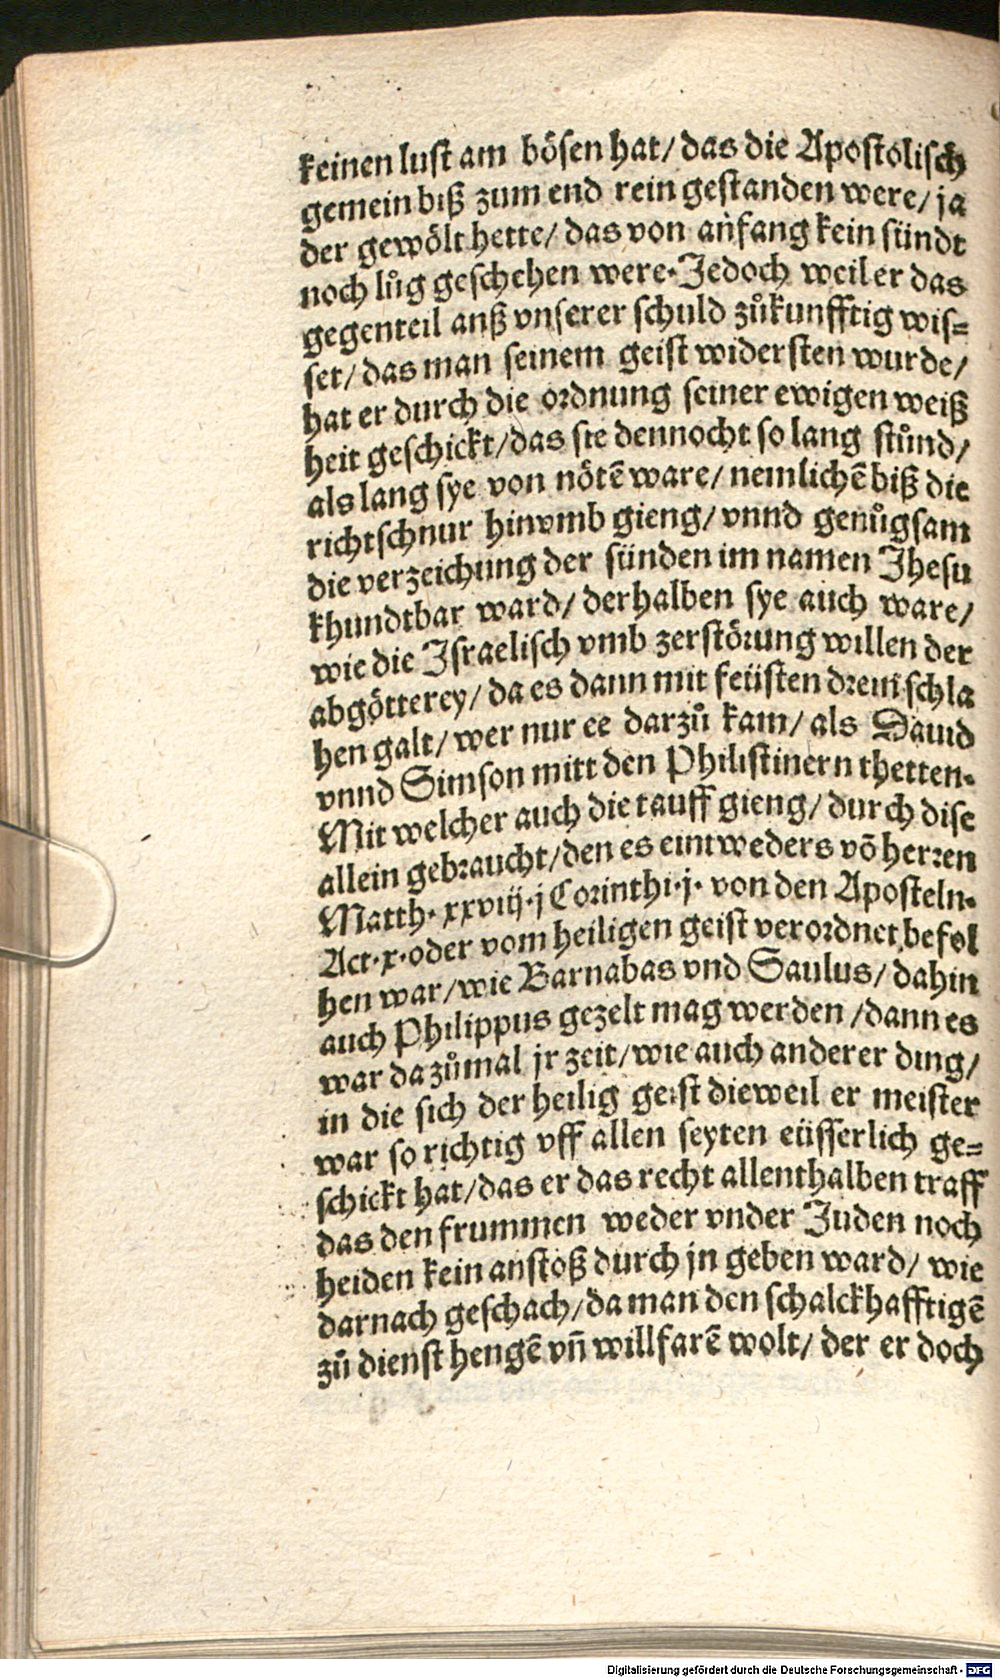 keinen lust am bösen hat/ das die Apostolisch
gemein biß zum end rein gestanden were/ ja
der gewölt hette/ das von anfang kein sündt
noch lůg geschehen were. Jedoch weil er das
gegenteil auß vnserer schuld zůkunfftig wis=
set/ das man seinem geist widersten wurde/
hat er durch die ordnung seiner ewigen weiß
heit geschickt/ das sie dennocht so lang stůnd/
als lang sye von nötē ware/ nemlichē biß die
richtschnur hinvmb gieng/ vnnd genůgsam
die verzeichung der sünden im namen Jhesu
khundtbar ward/ derhalben sye auch ware/
wie die Israelisch vmb zerstörung willen der
abgötterey/ da es dann mit feüsten drein schla
hen galt/ wer nur ee darzů kam/ als Dauid
vnnd Simson mitt den Philistinern thetten.
Mit welcher auch die tauff gieng/ durch dise
allein gebraucht/ den es eintweders vō herren
Matth. xxviij. j Corinthi. j. von den Aposteln.
Act. x. oder vom heiligen geist verordnet befol
hen war/ wie Barnabas vnd Saulus/ dahin
auch Philippus gezelt mag werden/ dann es
war dazůmal jr zeit/ wie auch anderer ding/
in die sich der heilig geist dieweil er meister
war so richtig vff allen seyten eüsserlich ge=
schickt hat/ das er das recht allenthalben traff
das den frummen weder vnder Juden noch
heiden kein anstoß durch jn geben ward/ wie
darnach geschach/ da man den schalckhafftigē
zů dienst hengē vn̄ willfarē wolt/ der er doch
Digitalisierung gefördert durch die Deutsche Forschungsgemeinschaft - DFG